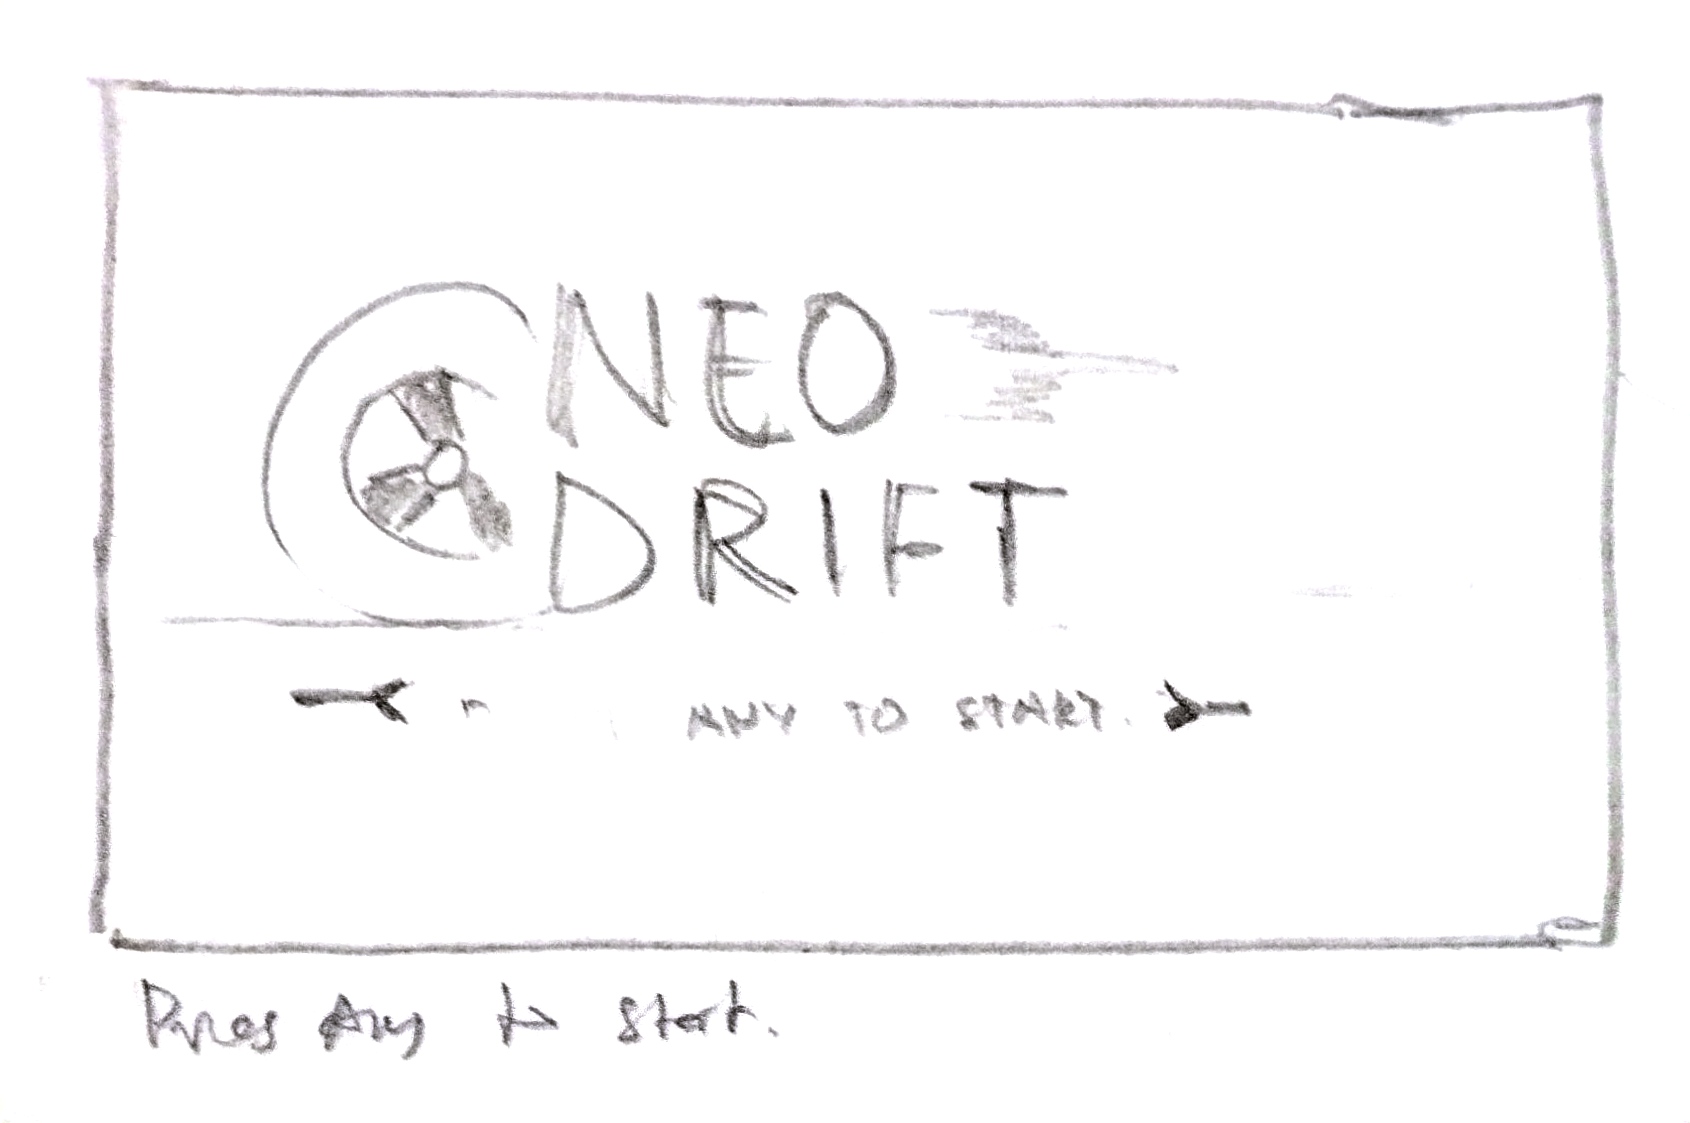 NEO
DRIFT
ANY TO START.
Press Any to Start.